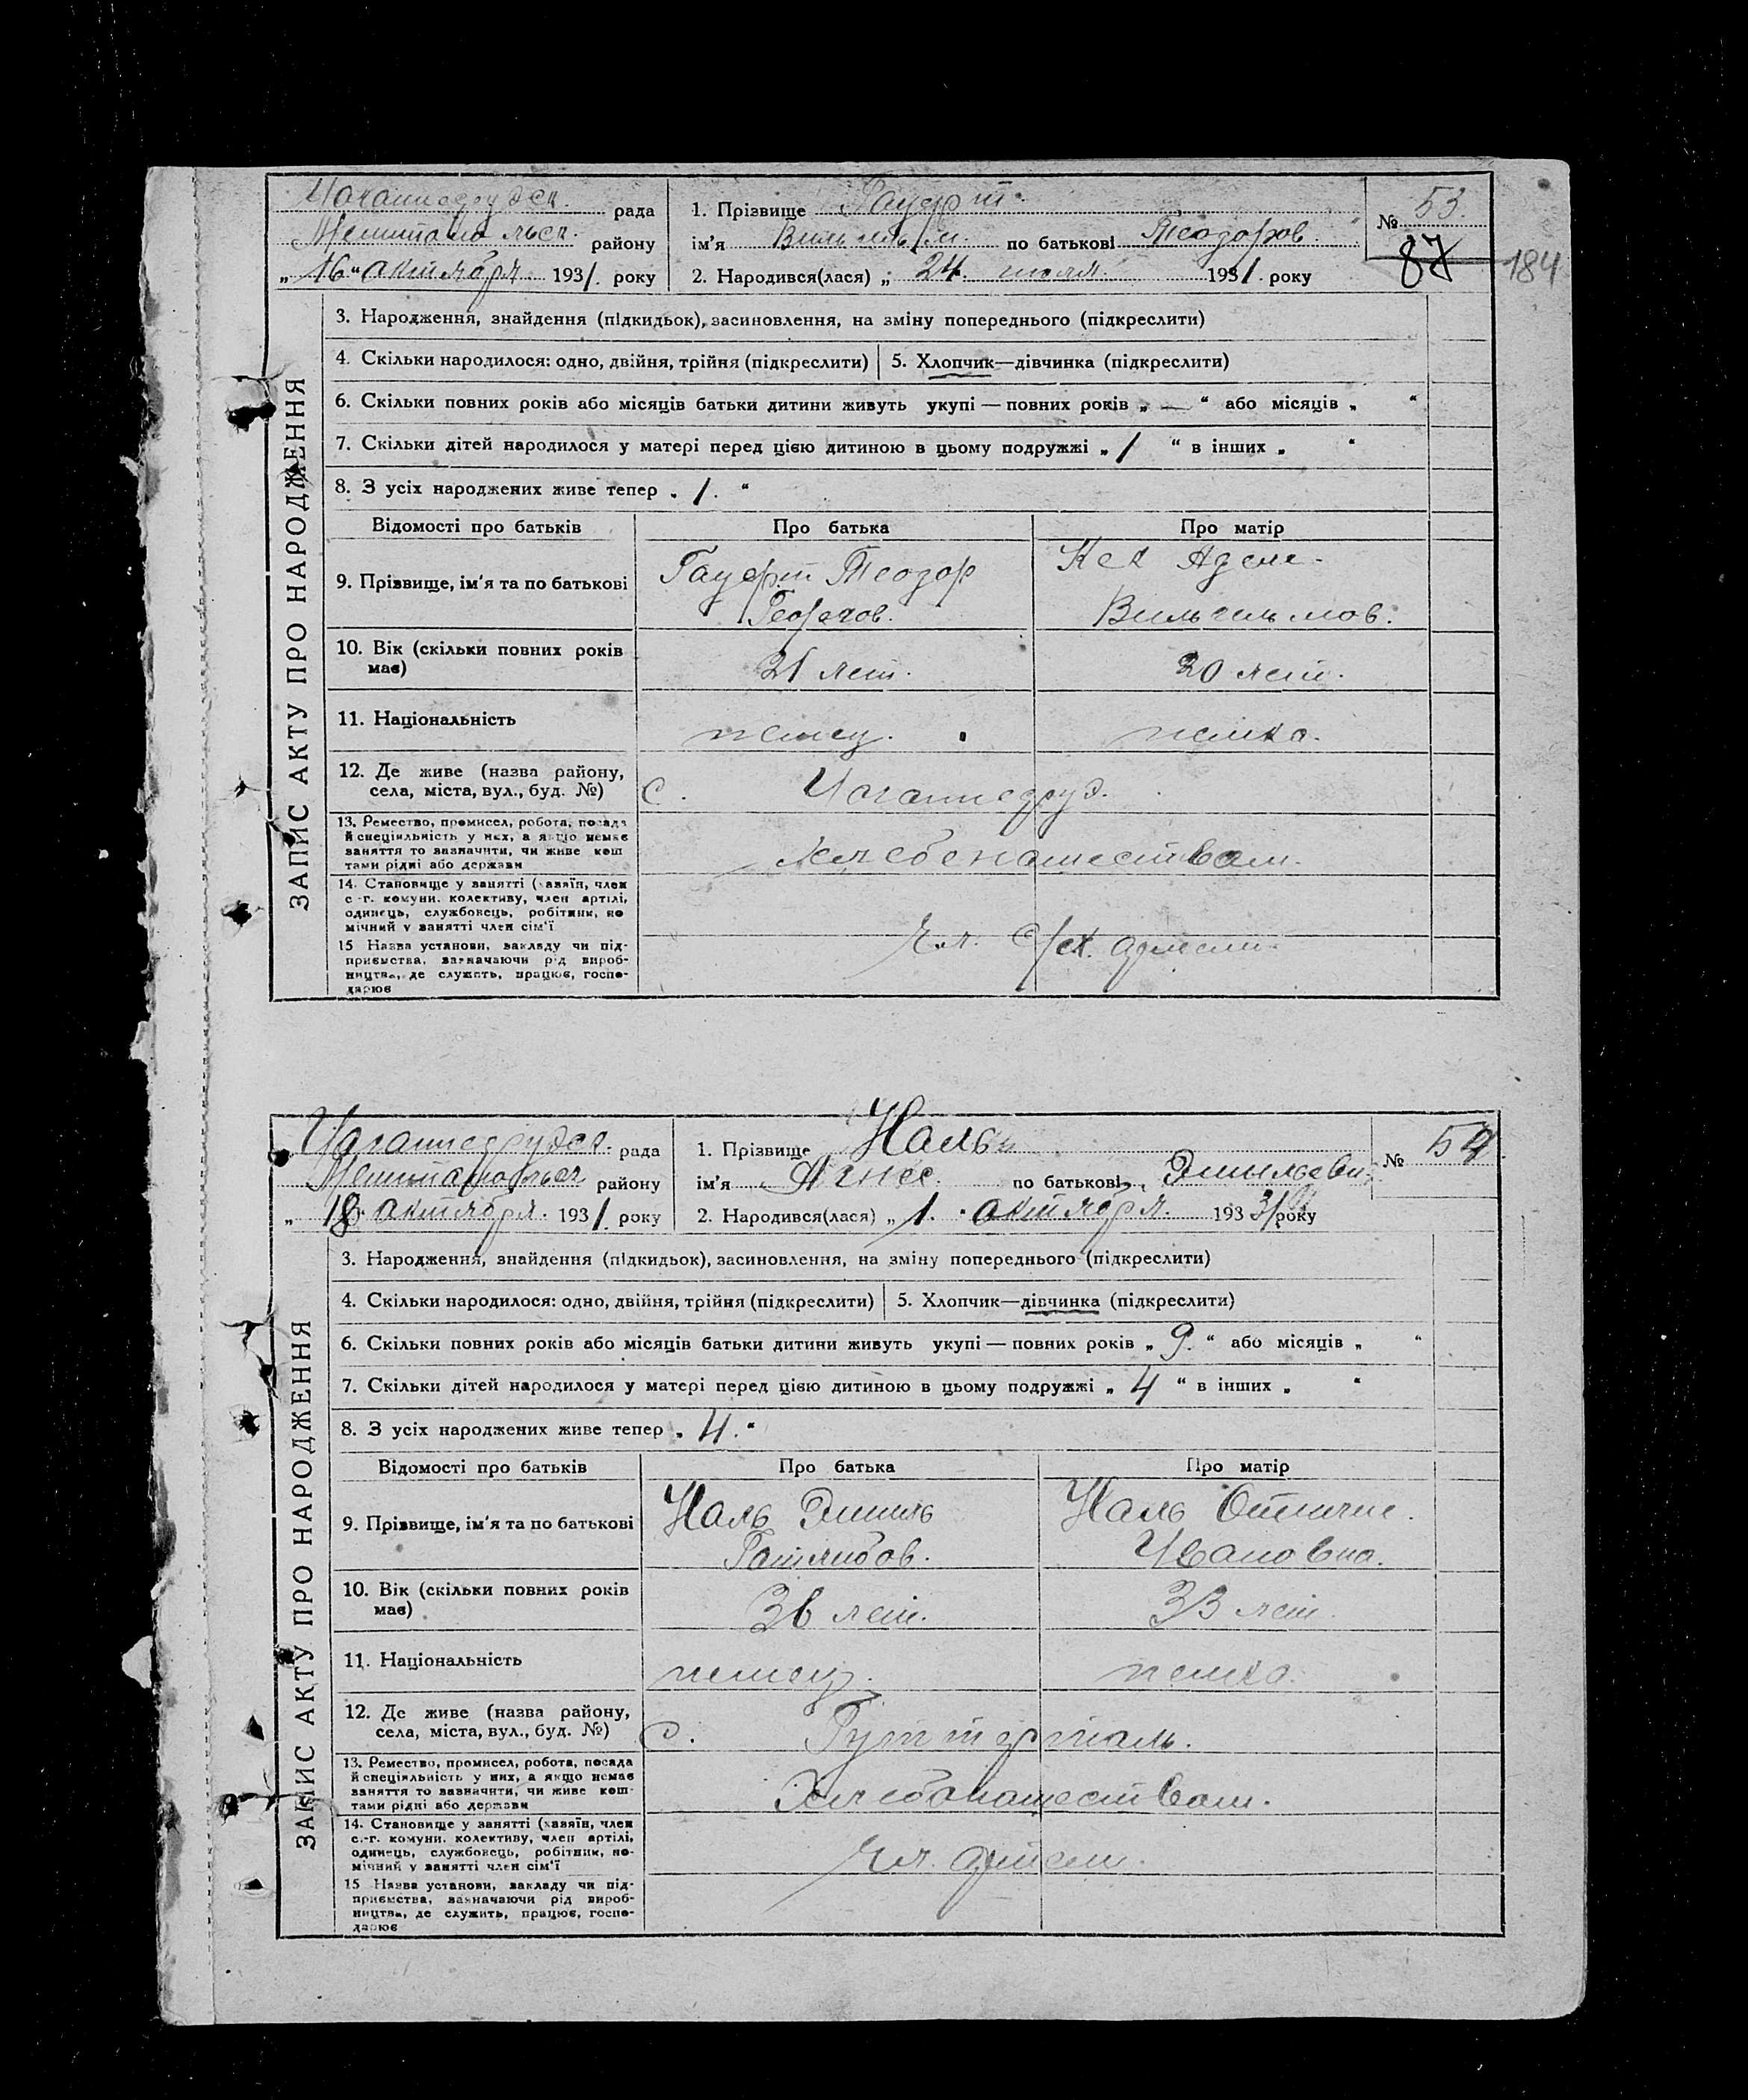 рада
району
„16“ октября 1931. року
1. Прізвище Гауфт
ім'я по батькові Теодоров.
2. Народився(лася) „ 24. 1931. року
№ 53.
87
184
ЗАПИС АКТУ ПРО НАРОДЖЕННЯ
3. Народження, знайдення (підкидьок), засиновлення, на зміну попереднього (підкреслити)
4. Скільки народилося: одно, двійня, трійня (підкреслити) 5. Хлопчик—дівчинка (підкреслити)
6. Скільки повних років або місяців батьки дитини живуть укупі — повних років „ — “ або місяців „ “
7. Скільки дітей народилося у матері перед цією дитиною в цьому подружжі „ 1 “ в інших „ “
8. З усіх народжених живе тепер „ 1. “
Відомості про батьків Про батька Про матір
9. Прізвище, ім'я та по батькові
Теодор
Адель.
Георгов.
Вильгельмов.
10. Вік (скільки повних років має)
21 лет. 20 лет.
11. Національність немец. немка.
12. Де живе (назва району,
села, міста, вул., буд. №) с.
13. Ремество, промисел, робота, посада
й спеціяльність у них, а якщо немає
заняття то зазначити, чи живе кош
тами рідні або держави
Хлебопашеством.
14. Становище у занятті (хазяїн, член
с.-г. комуни, колективу, член артілі,
одинець, службовець, робітник, по
мічний у занятті член сім'ї
15 Назва установи, закладу чи під-
приємства, зазначаючи рід вироб-
ництва, де служить, працює, госпо-
дарює
Чл. с/х. артели.
рада
району
„ 18. октября. 1931. року
1. Прізвище Наль
ім'я Агнес. по батькові Эмильевн.
2. Народився(лася) „ 1. октября. 193 31 року
№ 54
ЗАПИС АКТУ ПРО НАРОДЖЕННЯ
3. Народження, знайдення (підкидьок), засиновлення, на зміну попереднього (підкреслити)
4. Скільки народилося: одно, двійня, трійня (підкреслити) 5. Хлопчик—дівчинка (підкреслити)
6. Скільки повних років або місяців батьки дитини живуть укупі — повних років „ 9. “ або місяців „ “
7. Скільки дітей народилося у матері перед цією дитиною в цьому подружжі „ 4 “ в інших „ “
8. З усіх народжених живе тепер „ 4. “
Відомості про батьків Про батька Про матір
9. Прізвище, ім'я та по батькові
Наль Эмиль
Готлибов.
Наль
Ивановна.
10. Вік (скільки повних років має)
36 лет. 33 лет.
11. Національність немец. немка.
12. Де живе (назва району,
села, міста, вул., буд. №) с.
13. Ремество, промисел, робота, посада
й спеціяльність у них, а якщо немає
заняття то зазначити, чи живе кош-
тами рідні або держави
Хлебопашеством.
14. Становище у занятті (хазяїн, член
с.-г. комуни, колективу, член артілі,
одинець, службовець, робітник, по-
мічний у занятті член сім'ї
Чл. артели.
15 Назва установи, закладу чи під-
приємства, зазначаючи рід вироб-
ництва, де служить, працює, госпо-
дарює